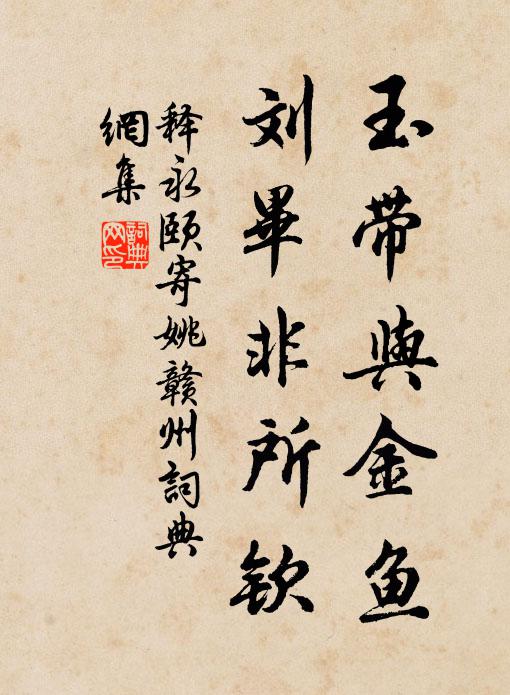 玉带與金鱼
刘畢非所钦
释永颐寄姚赣州詞典
網集
詞典
网印